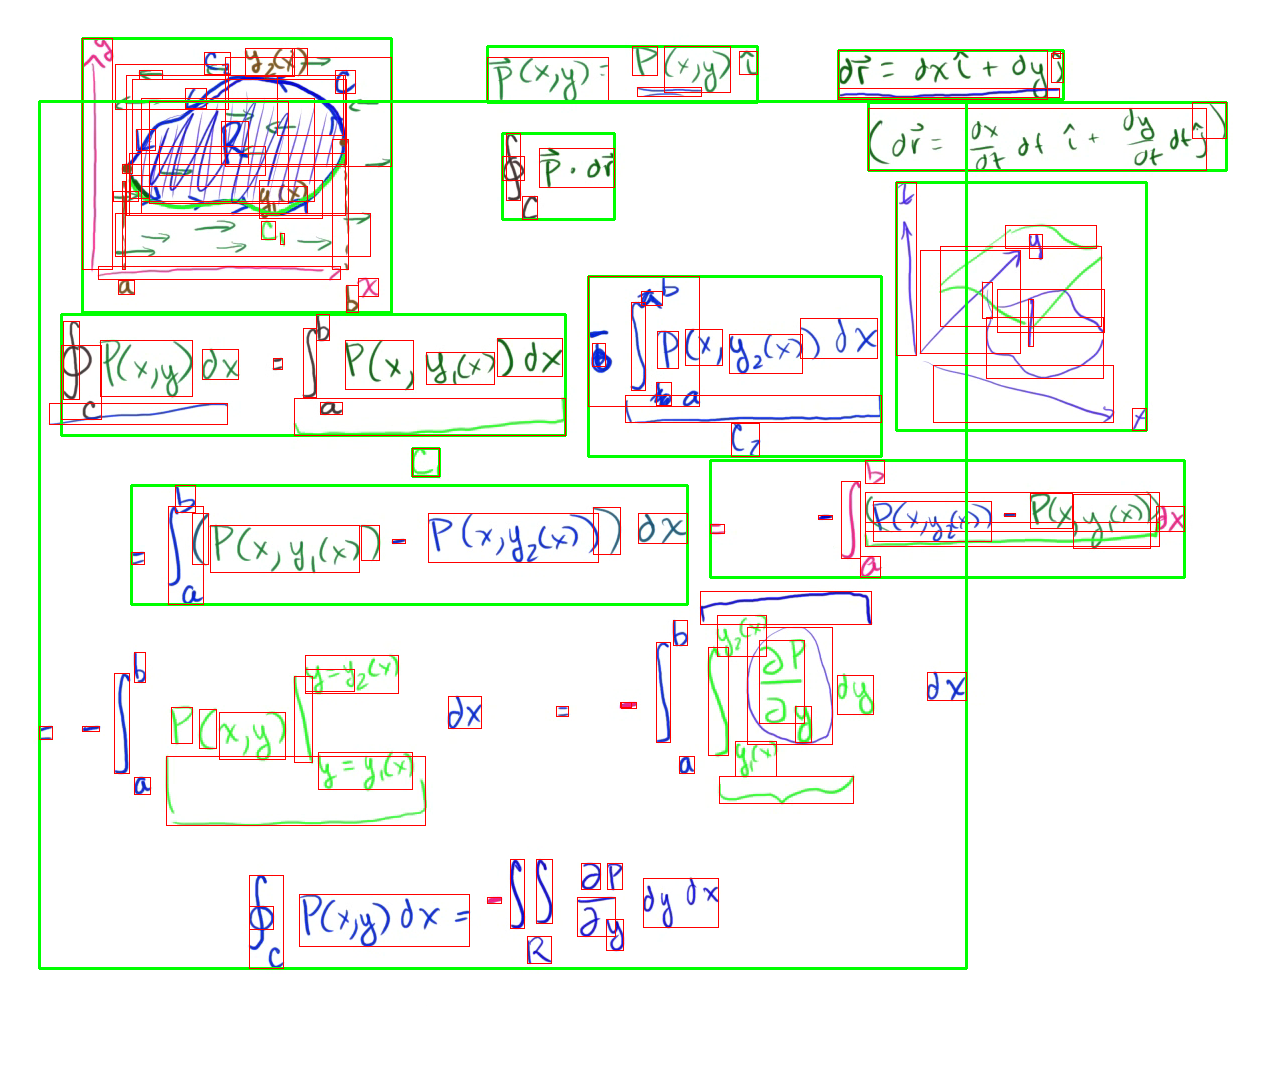 y C₂ y₂(x) C
R
y₁(x)
C₁
a b x
P⃗(x,y) = P(x,y) î
dr⃗ = dx î + dy ĵ
(dr⃗ = dx/dt dt î + dy/dt dt ĵ)
∮_C P⃗ · dr⃗
z y x
∮_C P(x,y) dx = ∫_a^b P(x, y₁(x)) dx
- ∫_a^b P(x, y₂(x)) dx
C₁ C₂
= ∫_a^b (P(x, y₁(x)) - P(x, y₂(x))) dx
= - ∫_a^b (P(x, y₂(x)) - P(x, y₁(x))) dx
= - ∫_a^b P(x,y) |_{y = y₁(x)}^{y = y₂(x)} dx = - ∫_a^b ∫_{y₁(x)}^{y₂(x)} ∂P/∂y dy dx
∮_C P(x,y) dx = - ∫∫_R ∂P/∂y dy dx